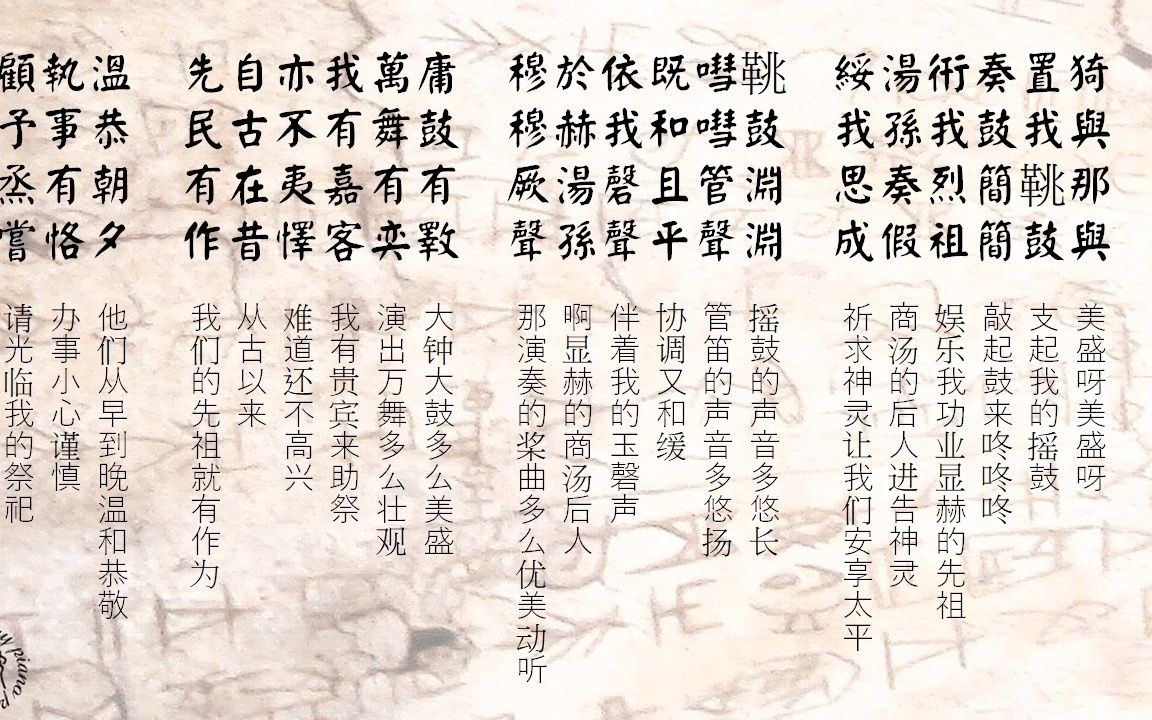 猗與那與
置我鞉鼓
奏鼓簡簡
衎我烈祖
湯孫奏假
綏我思成
鞉鼓淵淵
嘒嘒管聲
既和且平
依我磬聲
於赫湯孫
穆穆厥聲
庸鼓有斁
萬舞有奕
我有嘉客
亦不夷懌
自古在昔
先民有作
溫恭朝夕
執事有恪
顧予烝嘗
美盛呀美盛呀
支起我的摇鼓
敲起鼓来咚咚咚
娱乐我功业显赫的先祖
商汤的后人进告神灵
祈求神灵让我们安享太平
摇鼓的声音多悠长
管笛的声音多悠扬
协调又和缓
伴着我的玉磬声
啊显赫的商汤后人
那演奏的桨曲多么优美动听
大钟大鼓多么美盛
演出万舞多么壮观
我有贵宾来助祭
难道还不高兴
从古以来
我们的先祖就有作为
他们从早到晚温和恭敬
办事小心谨慎
请光临我的祭祀
piano